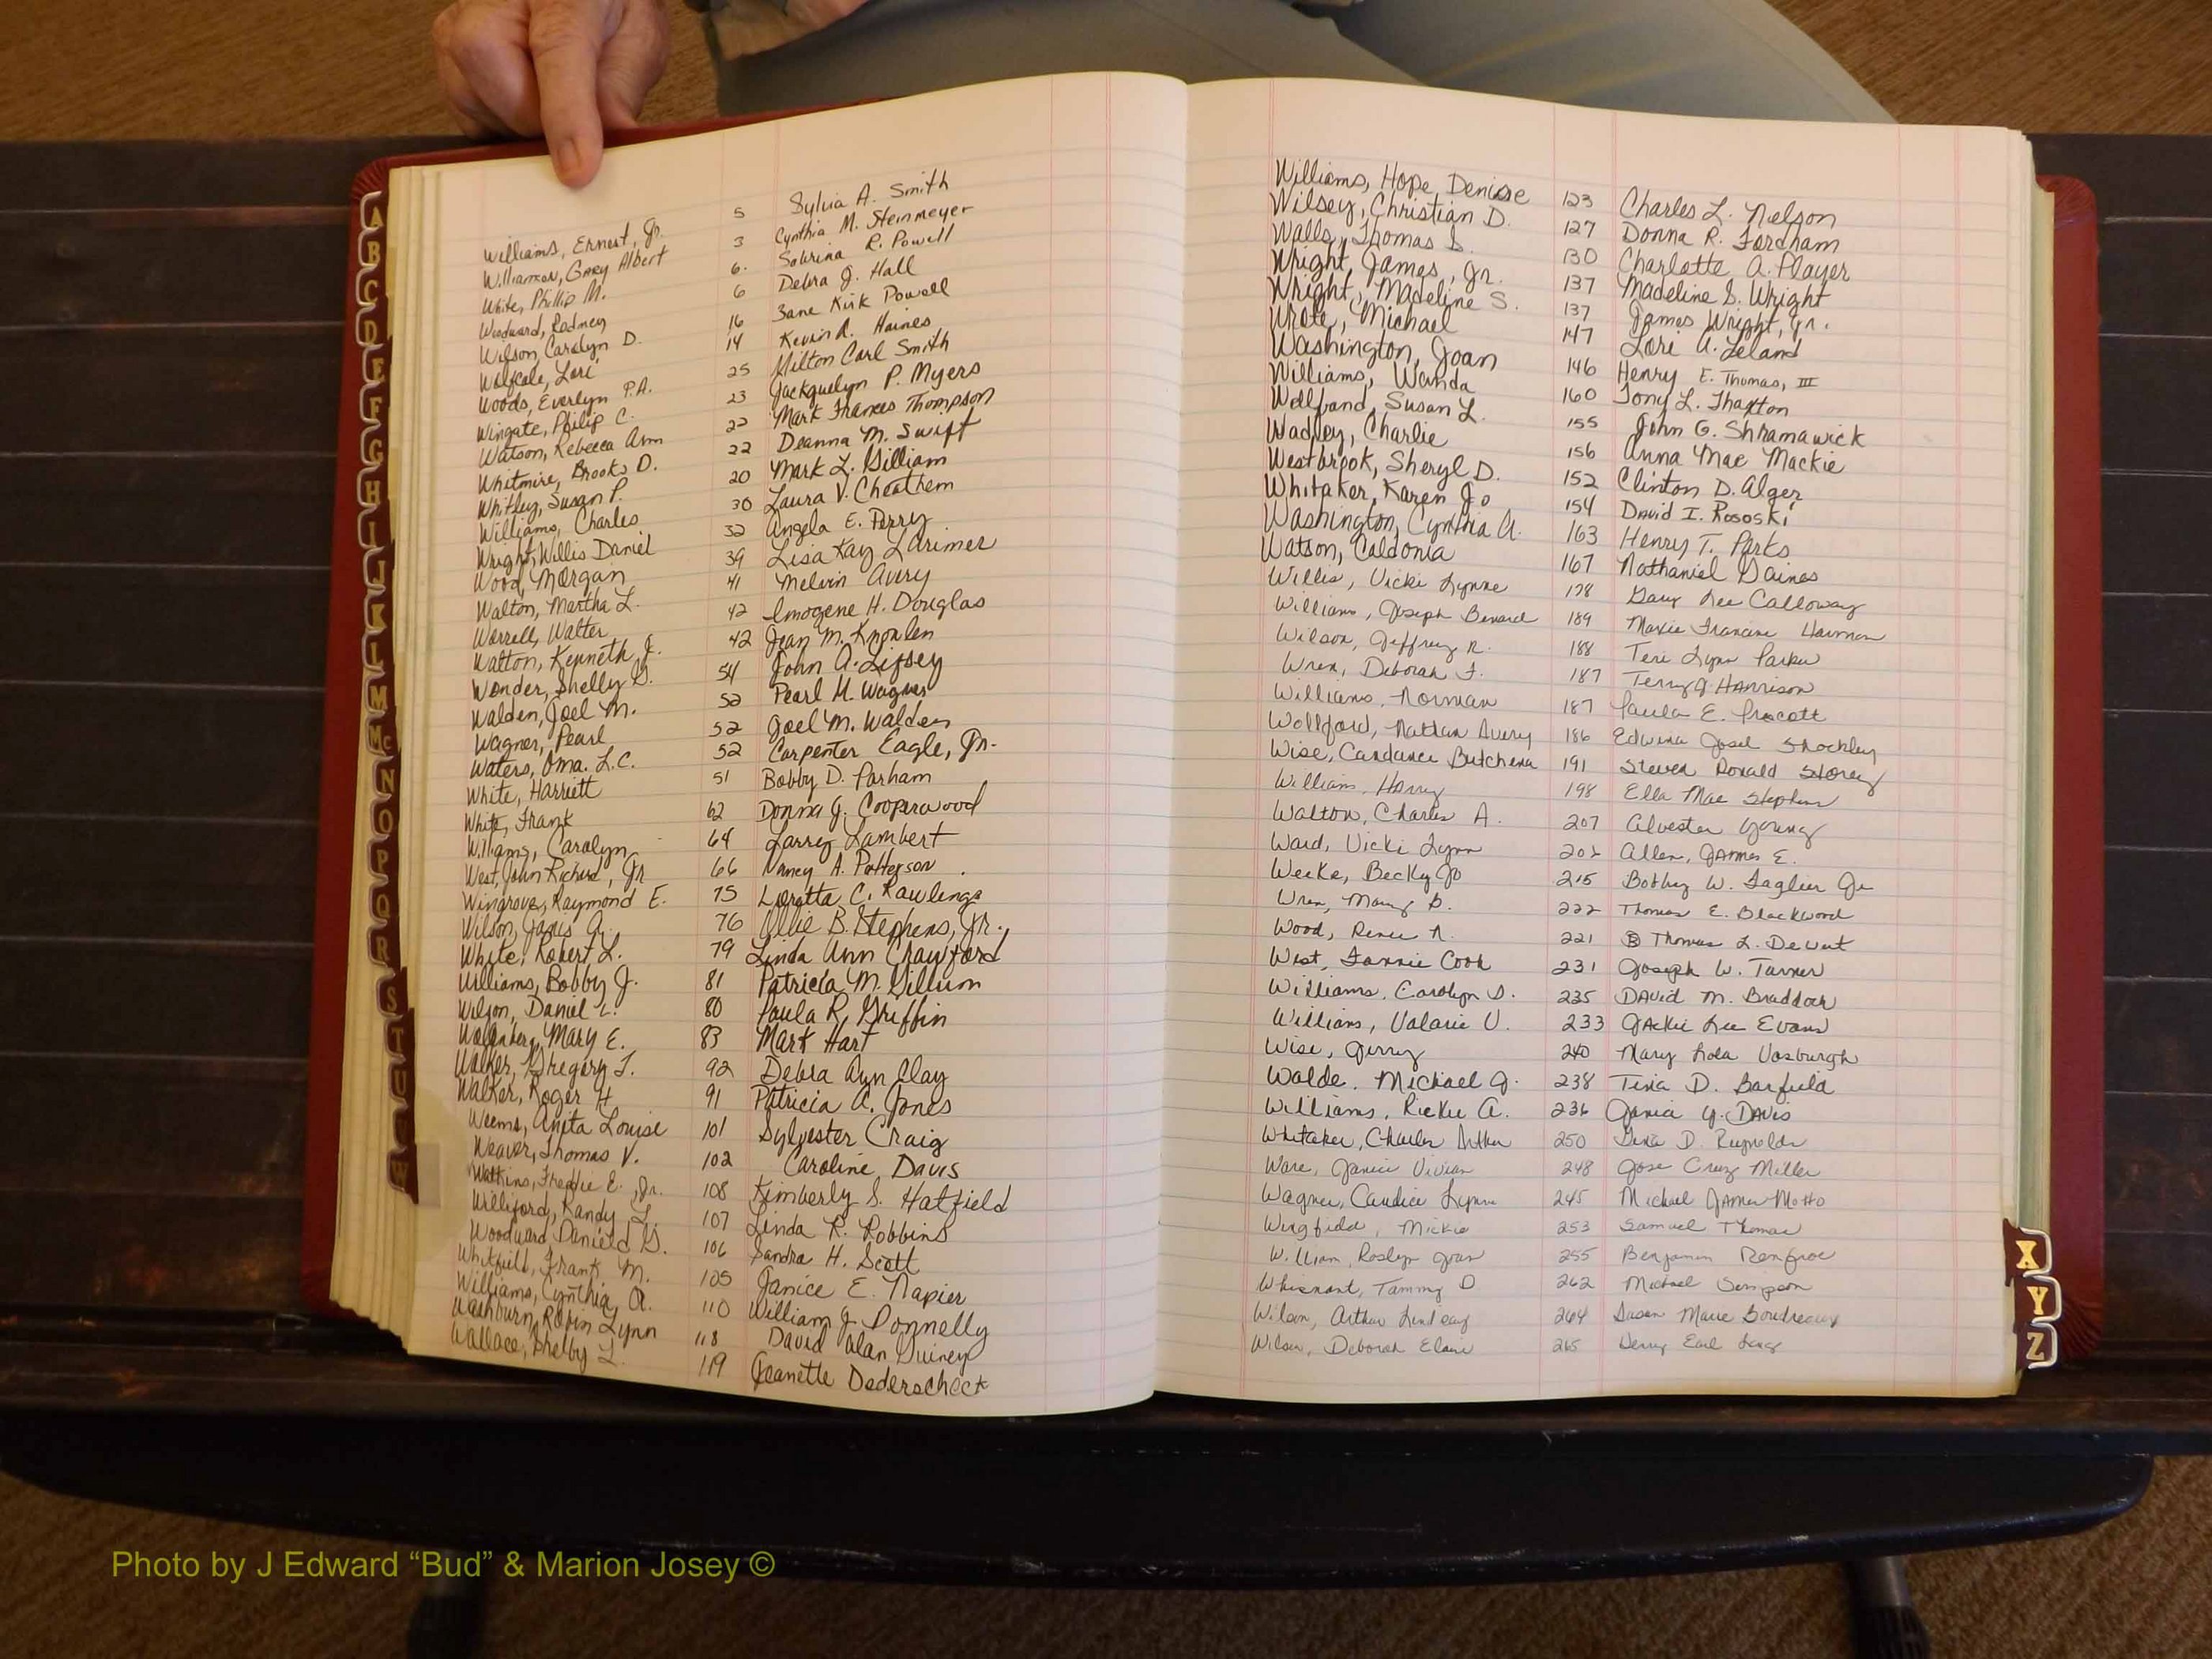 Williams, Ernest, Jr. 5 Sylvia A. Smith
Williamson, Gary Albert 3 Cynthia M. Steinmeyer
White, Phillip M. 6. Sabrina R. Powell
Woodward, Rodney 6 Debra J. Hall
Wilson, Carolyn D. 16 Zane Kirk Powell
Wolfcale, Lori 14 Kevin A. Haines
Woods, Everlyn P.A. 25 Milton Carl Smith
Wingate, Philip C. 23 Jackquelyn P. Myers
Watson, Rebecca Ann 22 Mark Frances Thompson
Whitmire, Brooks D. 22 Deanna M. Swift
Whitley, Susan P. 20 Mark L. Gilliam
Williams, Charles 30 Laura V. Cheathem
Wright, Willis Daniel 32 Angela E. Perry
Wood, Morgan 39 Lisa Kay Larimer
Walton, Martha L. 41 Melvin Avery
Worrell, Walter 42 Imogene H. Douglas
Walton, Kenneth J. 42 Jean M. Knowlen
Wonder, Shelly D. 54 John A. Lipsey
Walden, Joel M. 52 Pearl H. Wagner
Wagner, Pearl 52 Joel M. Walden
Waters, Oma. L.C. 52 Carpenter Eagle, Jr.
White, Harriett 51 Bobby D. Parham
White, Frank 62 Donna J. Cooperwood
Williams, Carolyn 64 Larry Lambert
West, John Richard, Jr 66 Nancy A. Patterson
Wingrove, Raymond E. 75 Loretta C. Rawlings
Wilson, Janis A. 76 Ollie B. Stephens, Jr.
White, Robert L. 79 Linda Ann Crawford
Williams, Bobby J. 81 Patricia M. Gillion
Wilson, Daniel L. 80 Paula R. Griffin
Mary E. 83 Mark Hart
Walker, Gregory T. 92 Debra Ann Clay
Walker, Roger H. 91 Patricia A. Jones
Weems, Anita Louise 101 Sylvester Craig
Weaver, Thomas V. 102 Caroline Davis
Watkins, Freddie E., Jr. 108 Kimberly S. Hatfield
Williford, Randy L. 107 Linda R. Robbins
Woodward, Daniel G. 106 Sandra H. Scott
Whitfield, Frank M. 105 Janice E. Napier
Williams, Cynthia A. 110 William J. Donnelly
Washburn, Robin Lynn 118 David Alan Quiney
Wallace, Shelby L. 119 Jeanette Dederscheck
Williams, Hope Denise 123 Charles L. Nelson
Wilsey, Christian D. 127 Donna R. Fordham
Walls, Thomas S. 130 Charlotte A. Player
Wright, James, Jr. 137 Madeline S. Wright
Wright, Madeline S. 137 James Wright, Jr.
Michael 147 Lori A. Leland
Washington, Joan 146 Henry E. Thomas, III
Williams, Wanda 160 Tony L. Thaxton
Susan L. 155 John G. Shramawick
Wadley, Charlie 156 Anna Mae Mackie
Westbrook, Sheryl D. 152 Clinton D. Alger
Whitaker, Karen Jo 154 David I. Rososki
Washington, Cynthia A. 163 Henry T. Parks
Watson, Caldonia 167 Nathaniel Gaines
Willis, Vicki Lynne 178 Gary Lee Calloway
Williams, Joseph Benard 189 Marie Francine Harmon
Wilson, Jeffrey R. 188 Teri Lynn Parker
Wren, Deborah F. 187 Terry J. Harrison
Williams, Norman 187 Paula E. Procott
Wollford, Nathan Avery 186 Edwina Josel Shockley
Wise, Candance Butchena 191 Steven Ronald Storey
William, Harry 198 Ella Mae Stephens
Walton, Charles A. 207 Alvester Young
Ward, Vicki Lynn 202 Allen, James E.
Weeks, Becky Jo 215 Bobby W. Taglier Jr
Wren, Mary B. 222 Thomas E. Blackwood
Wood, Renee N. 221 Thomas L. Dewut
West, Fannie Cook 231 Joseph W. Turner
Williams, Carolyn D. 235 David M. Braddock
Williams, Valarie V. 233 Jackie Lee Evans
Wise, Jerry 240 Mary Lola Vosburgh
Walde, Michael J. 238 Tina D. Barfield
Williams, Rickie A. 236 Janice Y. Davis
Whitaker, Charles Arthur 250 Gina D. Reynolds
Ware, Janice Vivian 248 Jose Cruz Miller
Wagner, Candice Lynne 245 Michael James Motto
Wingfield, Mickie 253 Samuel Thomas
William, Roslyn Joan 255 Benjamin Renfroe
Whisnant, Tammy D 262 Michael Simpson
Wilson, Arthur Lindsay 264 Susan Marie Boudreaux
Wilson, Deborah Elaine 265 Earl
A
B
C
D
E
F
G
H
I
J
K
L
M
Mc
N
O
P
Q
R
S
T
U
V
W
X
Y
Z
Photo by J Edward “Bud” & Marion Josey ©